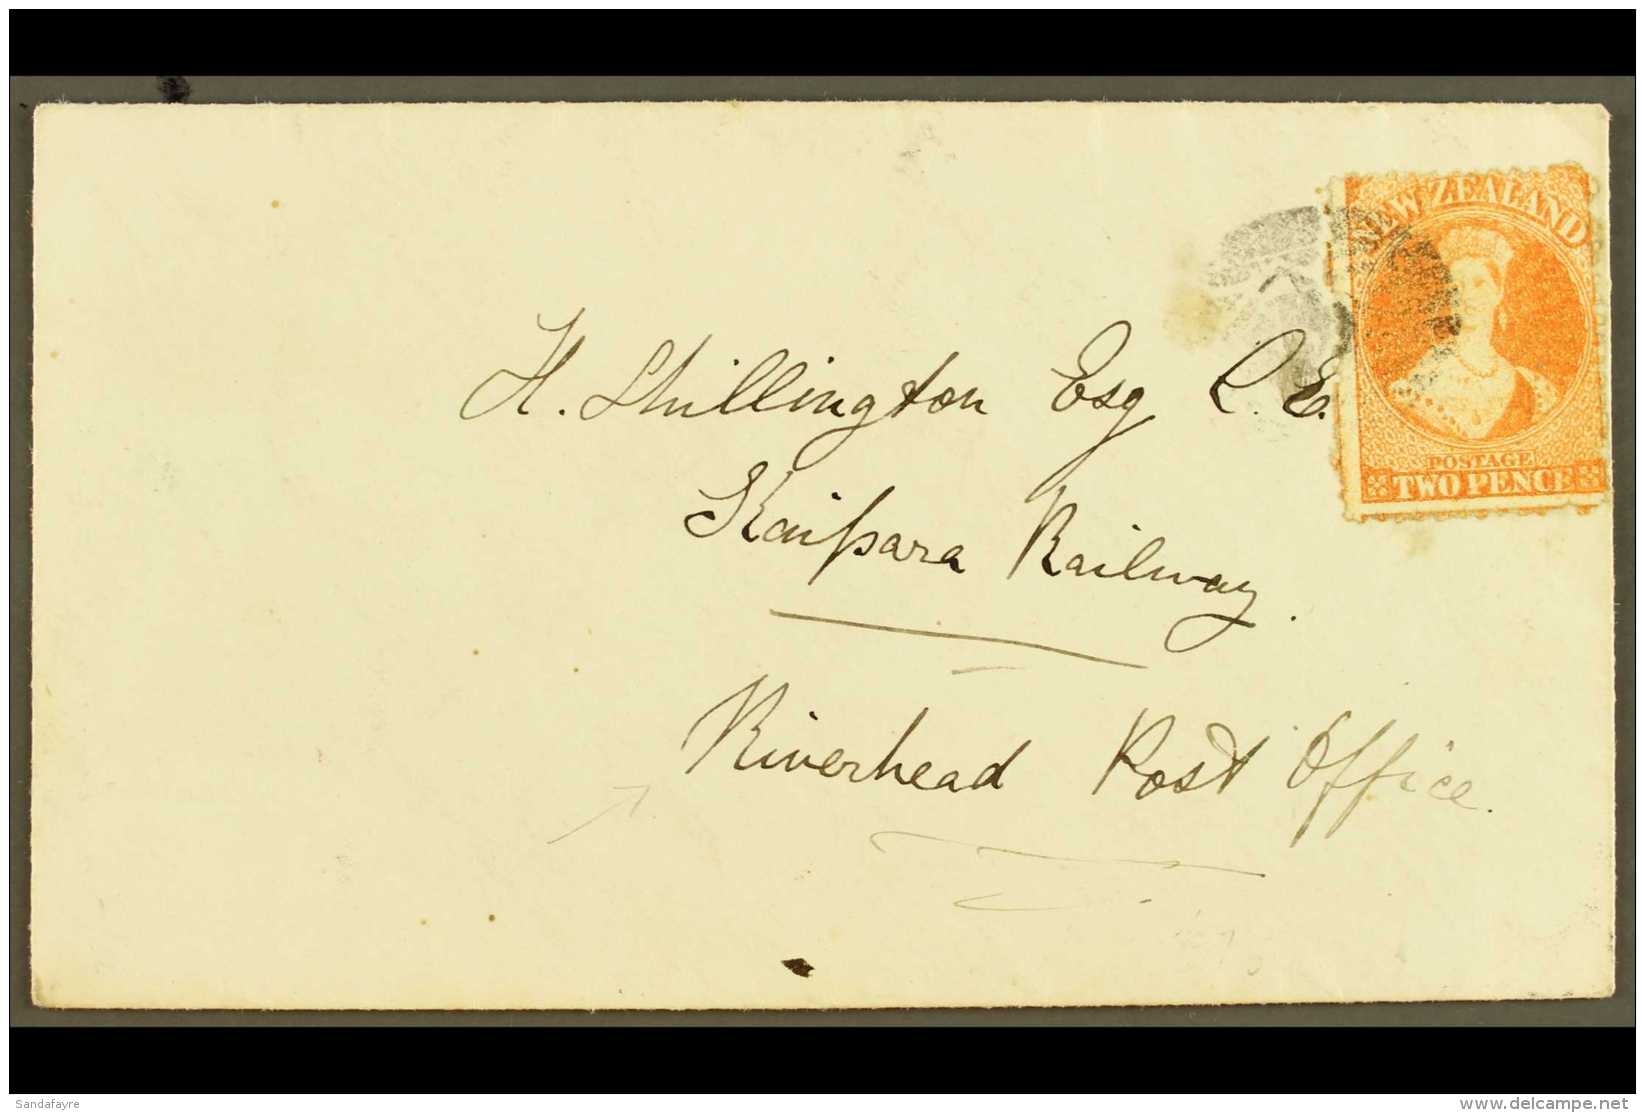 NEW ZEALAND
POSTAGE
TWO PENCE
H. Shillington Esq C. E.
Kaipara Railway.
Riverhead Post Office.
Sandafayre
delcampe.net